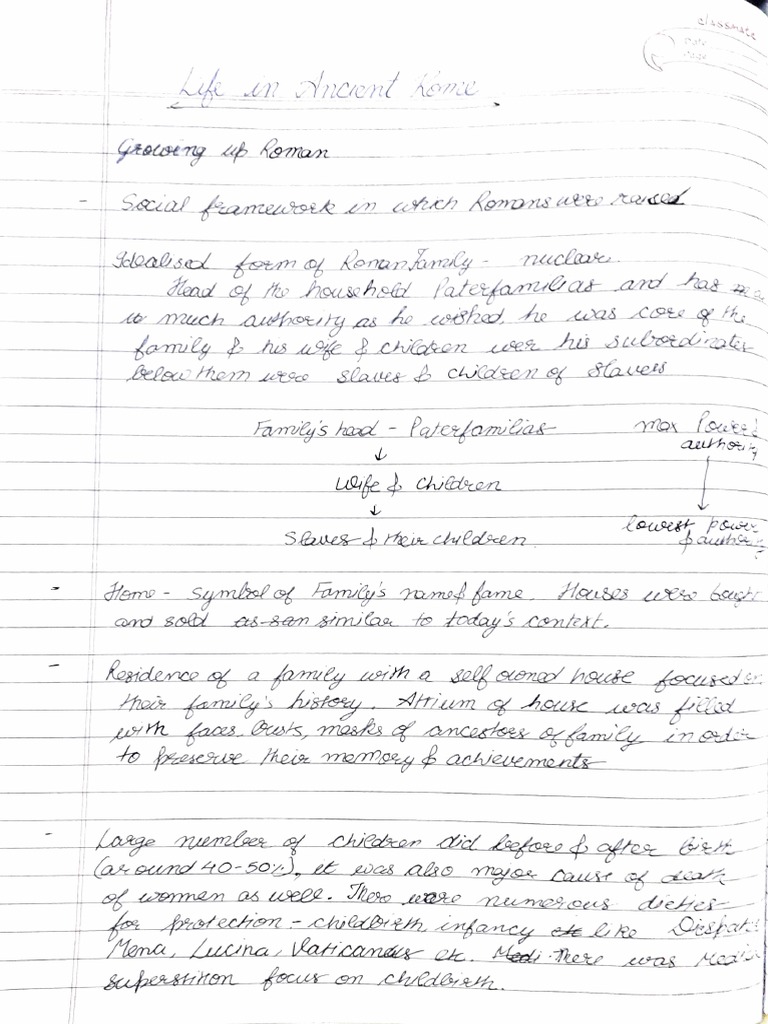 classmate
Date
Page
Life in Ancient Rome
Growing up Roman
- Social framework in which Romans were raised
Idealised form of Roman Family - nuclear.
Head of the household Paterfamilias and has
much authority as he wished, he was core of the
family & his wife & children wer his subordinates
below them were slaves & children of slavess
Family's head - Paterfamilias max Power &
↓ authority
Wife & children
↓
Slaves & their children lowest power
& authority
- Home - symbol of Family's name & fame. Houses were bought
and sold similar to today's context.
- Residence of a family with a self owned house focused on
their family's history. Atrium of house was filled
with faces busts, masks of ancestors of family in order
to preserve their memory & achievements
- Large number of children did before & after birth
(around 40-50%), it was also major cause of death
of women as well. There were numerous dieties
for protection - childbirth, infancy like
Mena, Lucina, Vaticanus etc. There was
superstition focus on childbirth.